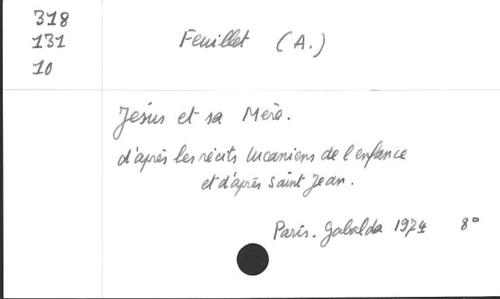 318
131
10
Feuillet (A.)
Jésus et sa Mère.
d'après les récits lucaniens de l'enfance
et d'après Saint Jean.
Paris. Gabalda 1974 8°